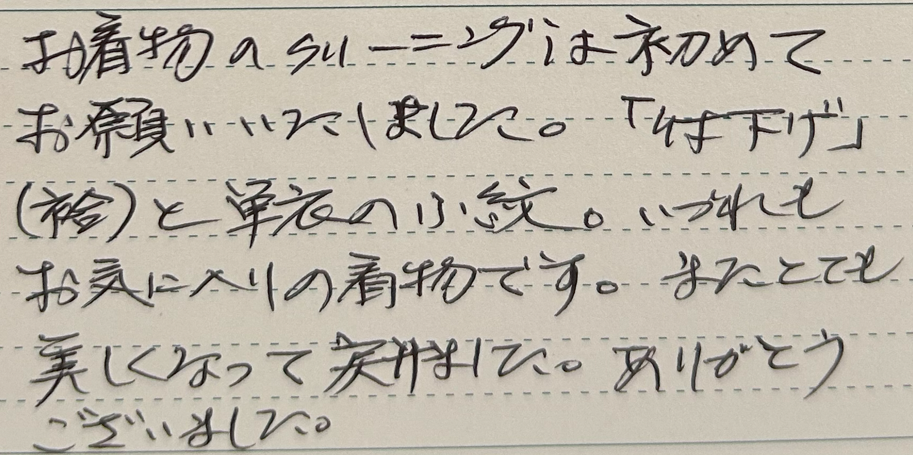 お着物のクリーニングは初めて
お願いいたしました。「付下げ」
(袷)と単衣の小紋。いづれも
お気に入りの着物です。またとても
美しくなって戻りました。ありがとう
ございました。